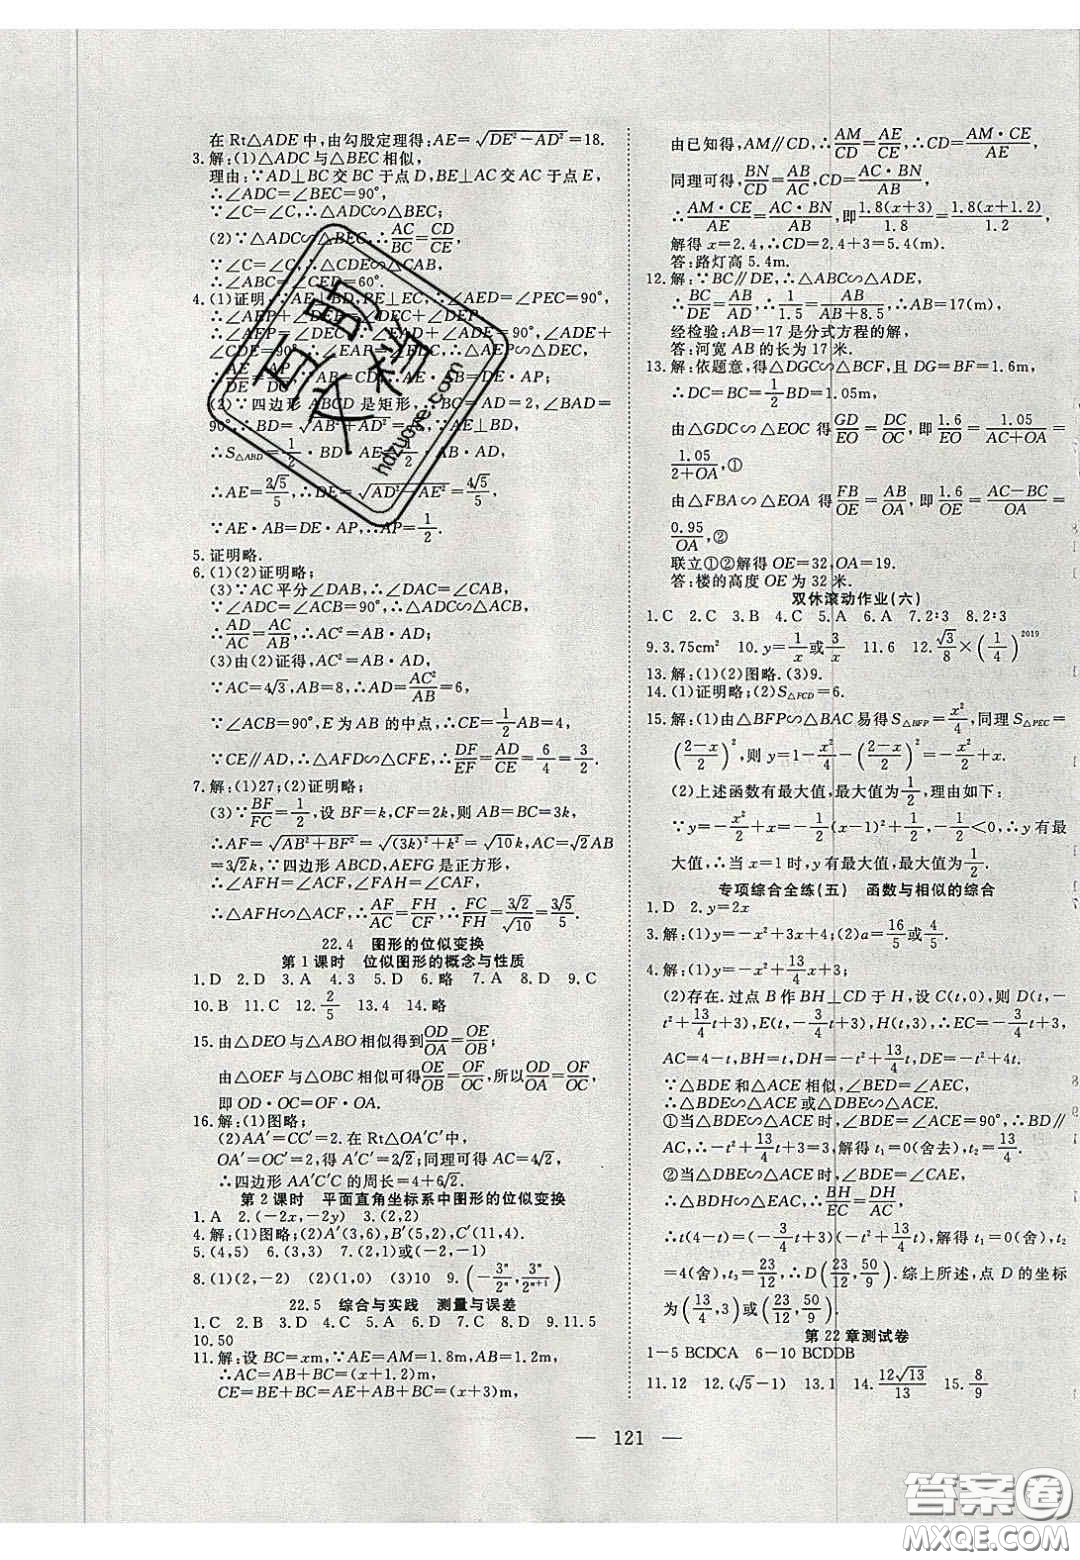 在 Rt△ADE 中,由勾股定理得:AE=√(DE²-AD²)=18.
3.解:(1)△ADC 与△BEC 相似,
理由:∵AD⊥BC 交 BC 于点 D,BE⊥AC 交 AC 于点 E,
∴∠ADC=∠BEC=90°,
∵∠C=∠C,∴△ADC∽△BEC;
(2)∵△ADC∽△BEC,∴AC/BC=CD/CE,
∵∠C=∠C,∴△CDE∽△CAB,
∴∠ABC=∠CED=60°.
4.(1)证明:∵AE⊥BD,PE⊥EC,∴∠AED=∠PEC=90°,
∴∠AEP+∠DEP=∠DEC+∠DEP,
∴∠AEP=∠DEC,∵∠EAD+∠ADE=90°,∠ADE+
∠CDE=90°,∴∠EAP=∠EDC,∴△AEP∽△DEC,
∴AE/DE=AP/DC.
(2)∵四边形 ABCD 是矩形,∴BC=AD=2,∠BAD=
90°,∴BD=√(AB²+AD²)=√5,∵AE⊥BD,
∴S△ABD=1/2·BD·AE=1/2·AB·AD,
∴AE=2√5/5,∴DE=√(AD²-AE²)=4√5/5,
∵AE·AB=DE·AP,∴AP=1/2.
5.证明略.
6.(1)(2)证明略;
(3)∵AC 平分∠DAB,∴∠DAC=∠CAB,
∵∠ADC=∠ACB=90°,∴△ADC∽△ACB,
∴AD/AC=AC/AB,∴AC²=AB·AD;
(3)由(2)证得,AC²=AB·AD,
∵AC=4√3,AB=8,∴AD=AC²/AB=6,
∵∠ACB=90°,E 为 AB 的中点,∴CE=1/2AB=4,
∵CE∥AD,∴△AFD∽△CFE,∴DF/EF=AD/CE=6/4=3/2.
7.解:(1)27;(2)证明略;
(3)∵BF/FC=1/2,设 BF=k,CF=2k,则 AB=BC=3k,
∴AF=√(AB²+BF²)=√((3k)²+k²)=√10k,AC=√2AB
=3√2k,∵四边形 ABCD,AEFG 是正方形,
∴∠AFH=∠ACF,∠FAH=∠CAF,
∴△AFH∽△ACF,∴AF/AC=FH/CF,∴FC/FH=3√2/√10=3√5/5.
22.4 图形的位似变换
第 1 课时 位似图形的概念与性质
1.D 2.D 3.A 4.3 5.D 6.略 7.D 8.D 9.C
10.B 11.C 12.2/5 13.4 14.略
15.由△DEO 与△ABO 相似得到OD/OA=OE/OB;
由△OEF 与△OBC 相似可得OE/OB=OF/OC,所以OD/OA=OF/OC,
即 OD·OC=OF·OA.
16.解:(1)图略;
(2)AA′=CC′=2.在 Rt△OA′C′中,
OA′=OC′=2,得 A′C′=2√2;同理可得 AC=4√2,
∴四边形 AA′C′C 的周长=4+6√2.
第 2 课时 平面直角坐标系中图形的位似变换
1.A 2.(-2x,-2y) 3.(2,2)
4.解:(1)图略;(2)A′(3,6),B′(5,2),C′(11,4).
5.(4,5) 6.(3,3) 7.(2,1)或(-2,-1)
8.(1)(2,-2) (2)(1,0) (3)10 9.(-3ⁿ/2ⁿ,3ⁿ/2ⁿ⁺¹)
22.5 综合与实践 测量与误差
1.C 2.B 3.D 4.A 5.B 6.D 7.C 8.C 9.11.5
10.50
11.解:设 BC=xm,∵AE=AM=1.8m,AB=1.2m,
∴AC=AB+BC=(x+1.2)m,
CE=BE+BC=AE+AB+BC=(x+3)m,
由已知得,AM∥CD,∴AM/CD=AE/CE,∴CD=AM·CE/AE,
同理可得,BN/CD=AB/AC,CD=AC·BN/AB,
∴AM·CE/AE=AC·BN/AB,即1.8(x+3)/1.8=1.8(x+1.2)/1.2,
解得 x=2.4,∴CD=2.4+3=5.4(m).
答:路灯高 5.4m.
12.解:∵BC∥DE,∴△ABC∽△ADE,
∴BC/DE=AB/AD,∴1/1.5=AB/AB+8.5,∴AB=17(m),
经检验:AB=17 是分式方程的解,
答:河宽 AB 的长为 17 米.
13.解:依题意,得△DGC∽△BCF,且 DG=BF=1.6m,
∴DC=BC=1/2BD=1.05m,
由△GDC∽△EOC 得GD/EO=DC/OC,即1.6/EO=1.05/AC+OA=
1.05/2+OA,①
由△FBA∽△EOA 得FB/OE=AB/OA,即1.6/OE=AC-BC/OA=
0.95/OA,②
联立①②解得 OE=32,OA=19.
答:楼的高度 OE 为 32 米.
双休滚动作业(六)
1.C 2.C 3.B 4.C 5.A 6.A 7.2∶3 8.2∶3
9.3.75cm² 10.y=1/x或3/x 11.6 12.√3/8×(1/4)²⁰¹⁹
13.解:(1)(2)图略.(3)9.
14.(1)证明略;(2)S△FCD=6.
15.解:(1)由△BFP∽△BAC易得S△BFP=x²/4,同理S△PEC=
(2-x/2)²,则 y=1-x²/4-(2-x/2)²=-x²/2+x.
(2)上述函数有最大值,最大值为1/2,理由如下:
∵y=-x²/2+x=-1/2(x-1)²+1/2,-1/2<0,∴y 有最
大值,∴当 x=1 时,y 有最大值,最大值为1/2.
专项综合全练(五) 函数与相似的综合
1.D 2.y=2x
3.解:(1)y=-x²+3x+4;(2)a=16/5或4/5.
4.解:(1)y=-x²+13/4x+3;
(2)存在.过点 B 作 BH⊥CD 于 H,设 C(t,0),则 D(t,-
t²+13/4t+3),E(t,-3/4t+3),H(t,3),∴EC=-3/4t+3,
AC=4-t,BH=t,DH=-t²+13/4t,DE=-t²+4t.
∵△BDE 和△ACE 相似,∠BED=∠AEC,
∴△BDE∽△ACE 或△DBE∽△ACE.
①当△BDE∽△ACE时,∠BDE=∠ACE=90°,∴BD∥
AC,∴-t²+13/4t+3=3,解得 t₁=0(舍去),t₂=13/4;
②当△DBE∽△ACE 时,∠BDE=∠CAE,
∴△BDH∽△ACE,∴BH/EC=DH/AC,
∴t(4-t)=(-3/4t+3)(-t²+13/4t),解得 t₁=0(舍),t₂
=4(舍),t₃=23/12,∴D(23/12,50/9).综上所述,点 D 的坐标
为(13/4,3)或(23/12,50/9).
第 22 章测试卷
1-5 BCDCA 6-10 BCDDB
11.12 12.(√5-1) 13.1 14.12√13/13 15.8/9
— 121 —
hdzuoye.com
答案圈
MXQE.COM